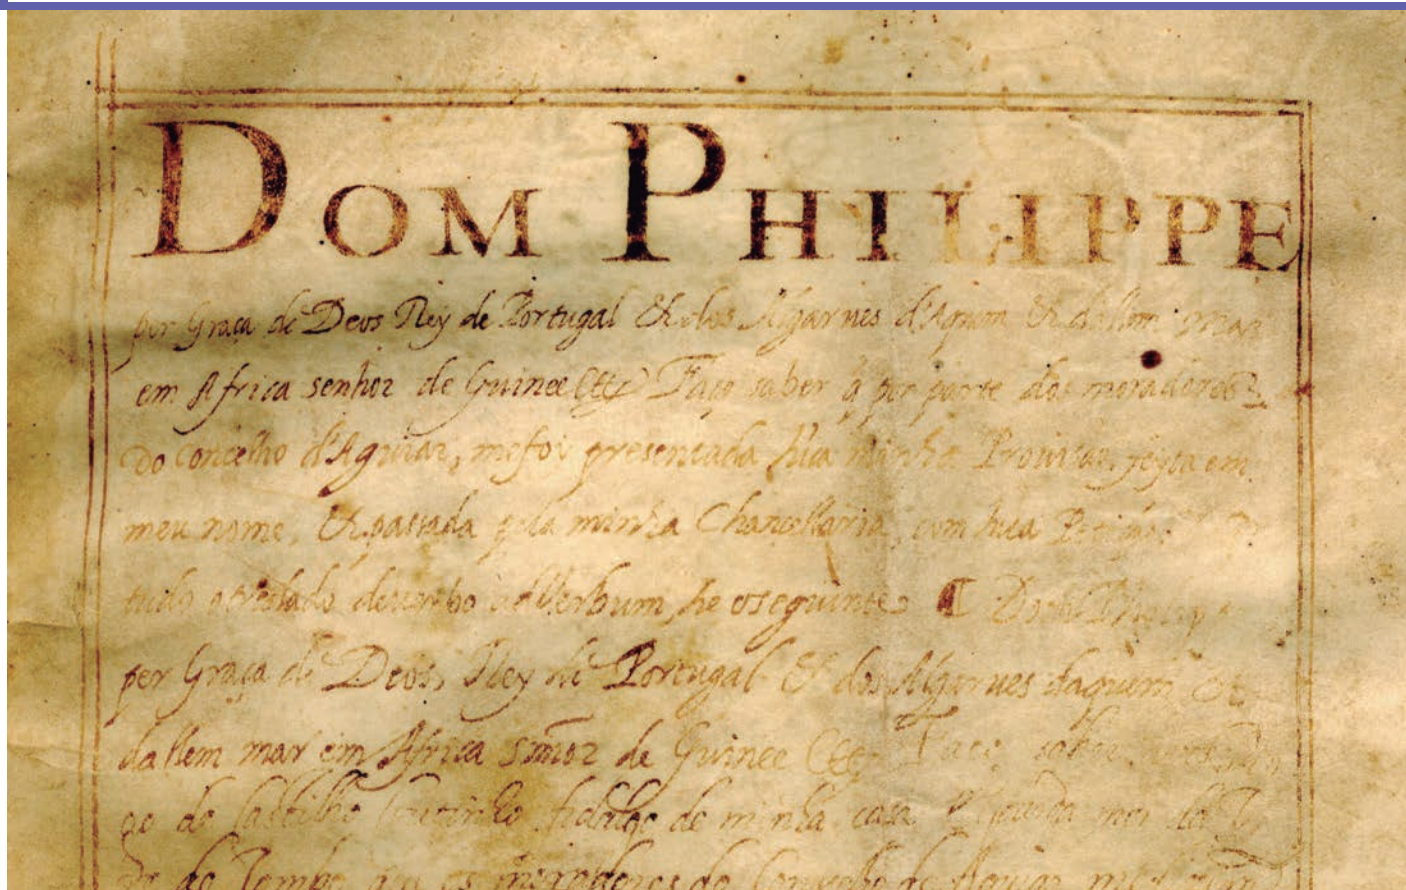 DOM PHILIPPE
per Graça de Deos Rey de Portugal & dos Algarues d'Aquem & dallem mar
em Africa senhor de Guinee &c Faço saber q̃ por parte dos moradores
do Concelho d'Aguiar, me foi presentada hũa minha Prouisaõ, feyta em
meu nome, & passada pela minha Chancellaria, com hua
tudo o treslado de verbo ad Verbum, he o seguinte ¶ Dom
per Graça de Deos, Rey de Portugal & dos Algarues daquem &
dallem mar em Africa sñor de Guinee &c Faço saber
go do Castilho Coutinho fidalgo de minha casa & guarda mor da
re do Tombo que os moradores do Concelho de Aguiar